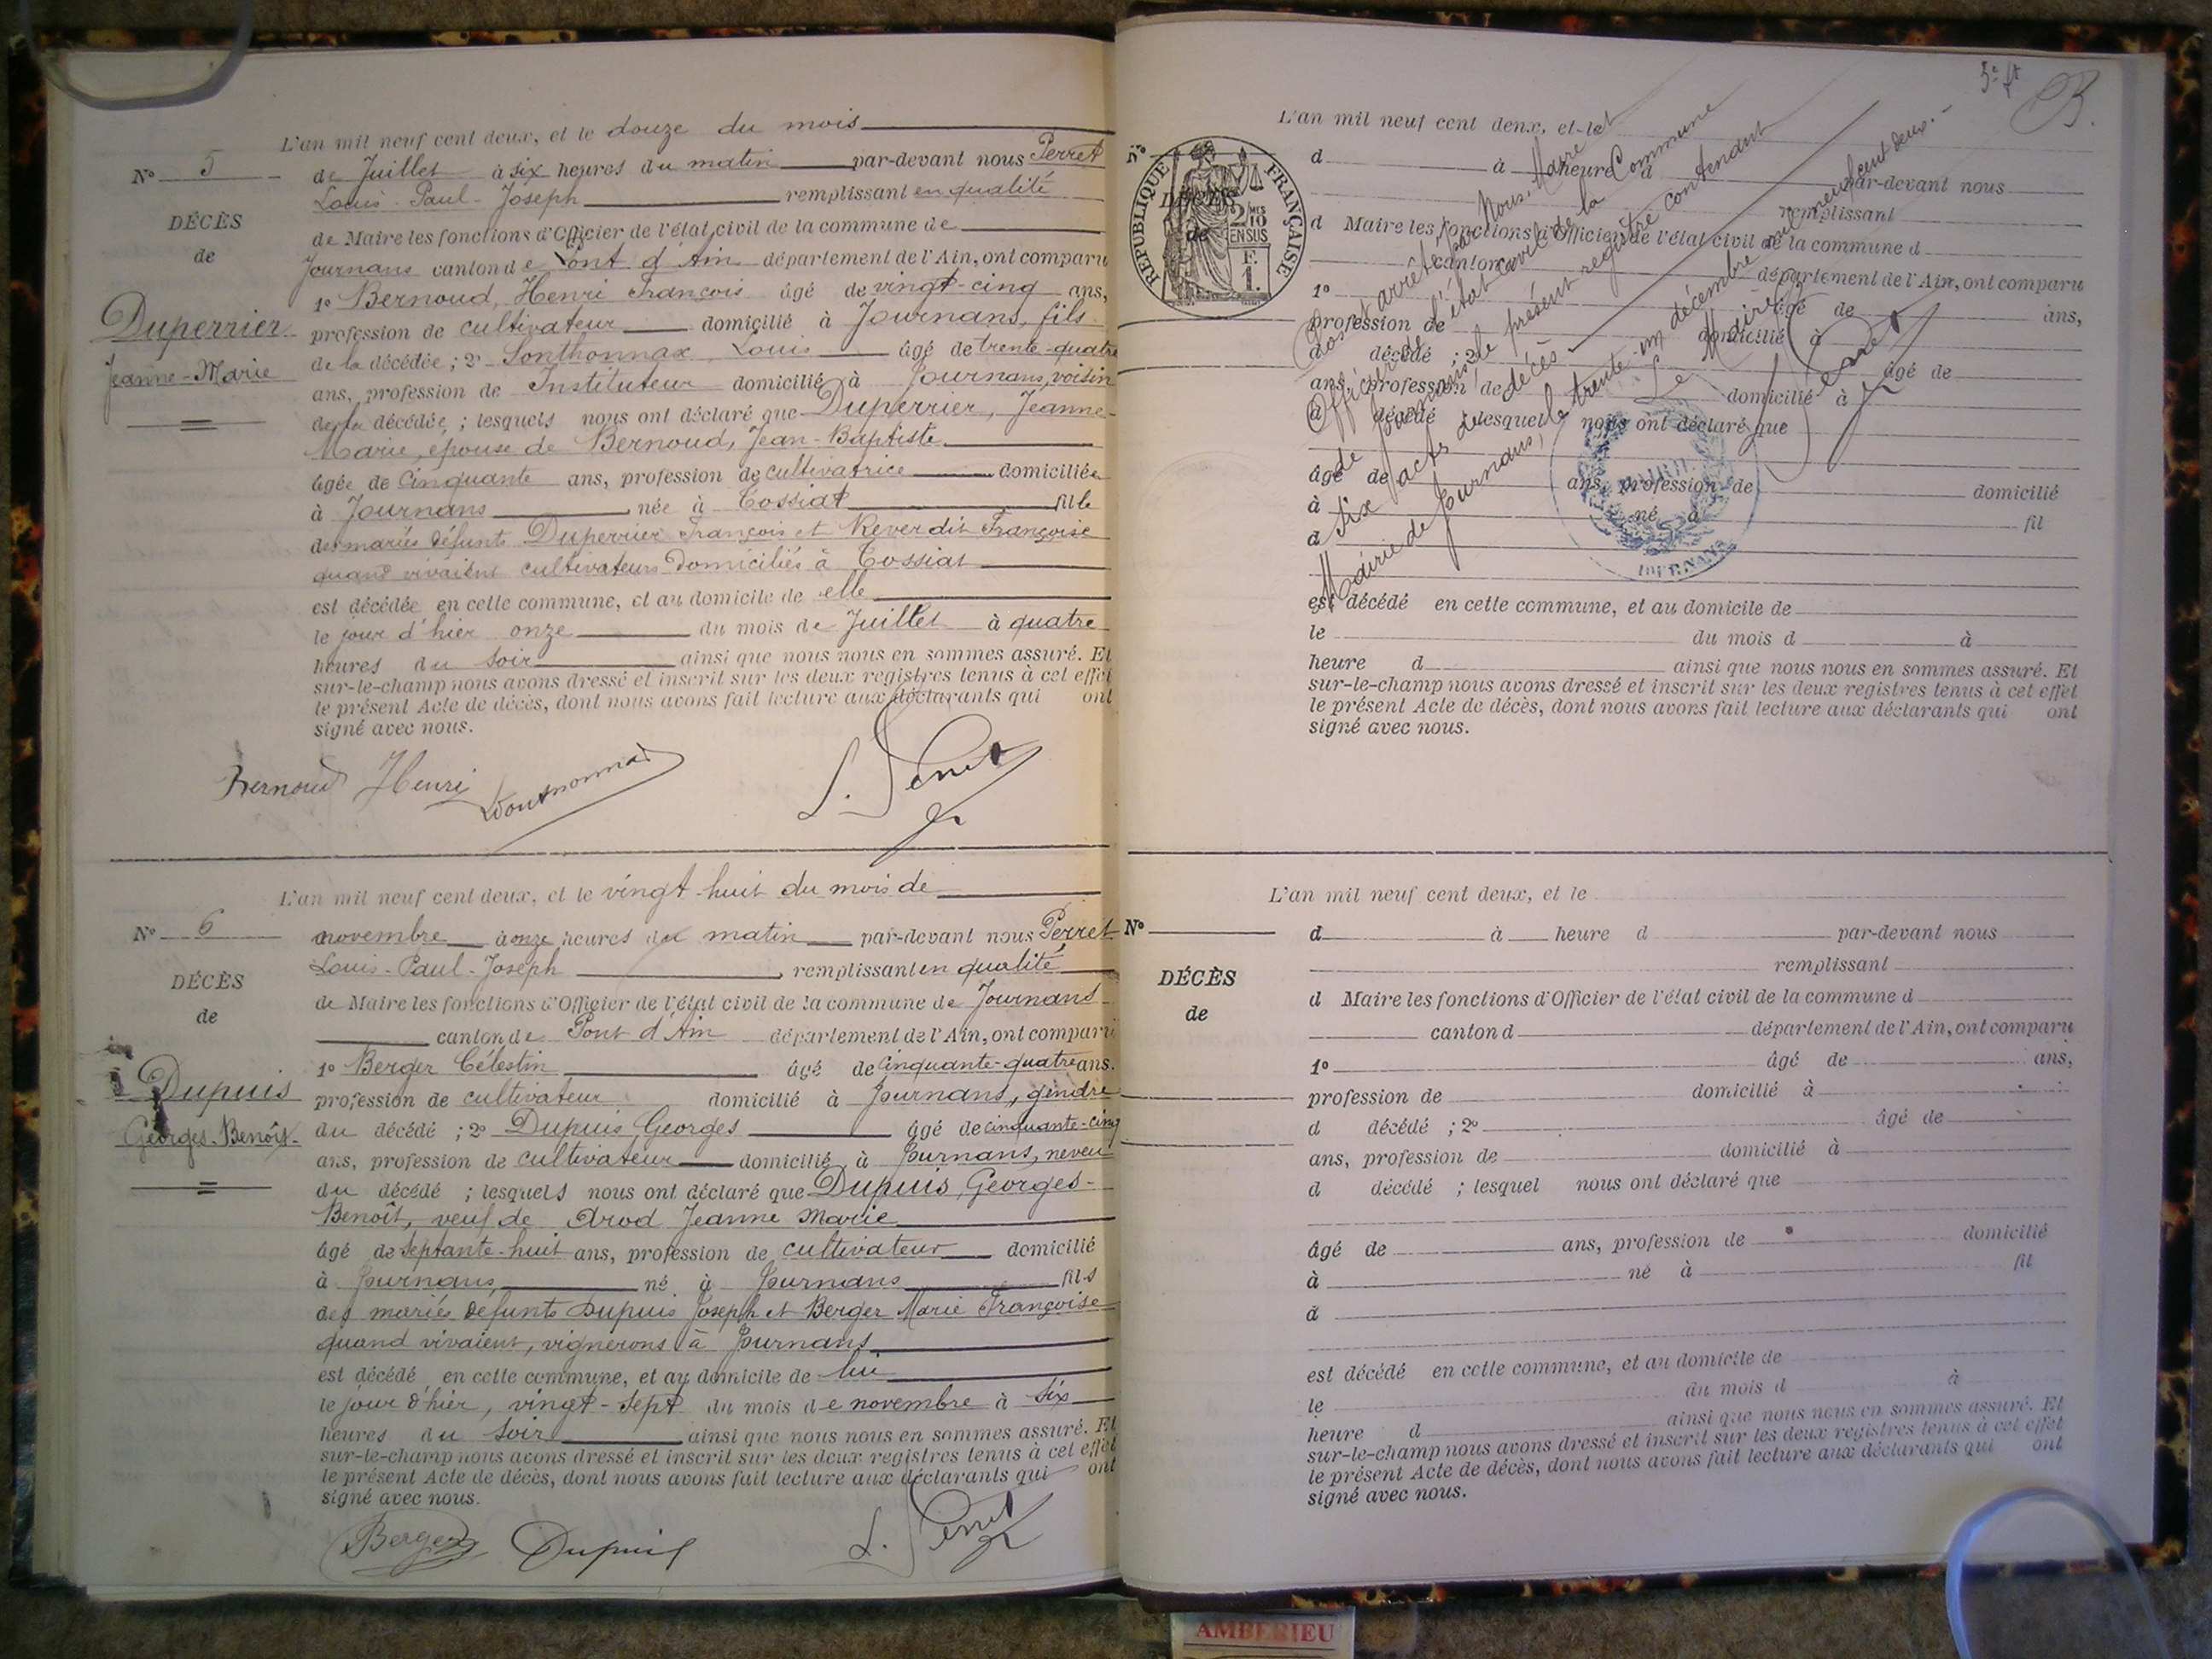 L'an mil neuf cent deux, et le douze du mois
N° 5
de Juillet à six heures du matin par-devant nous Perret
Louis-Paul-Joseph remplissant en qualité
DÉCÈS
de Maire les fonctions d'Officier de l'état civil de la commune de
de
Journans canton de Pont d'Ain département de l'Ain, ont comparu
1° Bernoud, Henri François âgé de vingt-cinq ans,
Duperrier
profession de cultivateur domicilié à Journans, fils
de la décédée ; 2° Sonthonnax Louis âgé de trente-quatre
Jeanne-Marie
ans, profession de Instituteur domicilié à Journans, voisin
de la décédée ; lesquels nous ont déclaré que Duperrier, Jeanne-
Marie, épouse de Bernoud, Jean-Baptiste
âgée de Cinquante ans, profession de cultivatrice domiciliée
à Journans née à Tossiat fille
des mariés défunts Duperrier François et Reverdit Françoise
quand vivaient cultivateurs domiciliés à Tossiat
est décédée en cette commune, et au domicile de elle
le jour d'hier onze du mois de Juillet à quatre
heures du soir ainsi que nous nous en sommes assuré. Et
sur-le-champ nous avons dressé et inscrit sur les deux registres tenus à cet effet
le présent Acte de décès, dont nous avons fait lecture aux déclarants qui ont
signé avec nous.
Bernoud Henri Sonthonnax L. Perret
L'an mil neuf cent deux, et le vingt-huit du mois de
N° 6
novembre à onze heures du matin par-devant nous Perret
Louis-Paul-Joseph remplissant en qualité
DÉCÈS
de Maire les fonctions d'Officier de l'état civil de la commune de Journans
de
canton de Pont d'Ain département de l'Ain, ont comparu
1° Berger Célestin âgé de Cinquante-quatre ans.
Dupuis
profession de cultivateur domicilié à Journans, gendre
Georges-Benoît
du décédé ; 2° Dupuis Georges âgé de cinquante-cinq
ans, profession de cultivateur domicilié à Journans, neveu
du décédé ; lesquels nous ont déclaré que Dupuis, Georges-
Benoît, veuf de Arod Jeanne Marie
âgé de septante-huit ans, profession de cultivateur domicilié
à Journans, né à Journans fils
des mariés défunts Dupuis Joseph et Berger Marie Françoise
quand vivaient, vignerons à Journans
est décédé en cette commune, et au domicile de lui
le jour d'hier, vingt-sept du mois de novembre à six
heures du soir ainsi que nous nous en sommes assuré. Et
sur-le-champ nous avons dressé et inscrit sur les deux registres tenus à cet effet
le présent Acte de décès, dont nous avons fait lecture aux déclarants qui ont
signé avec nous.
Berger Dupuis L. Perret
L'an mil neuf cent deux, et le
N°
d à heure d par-devant nous
remplissant
DÉCÈS
de
d Maire les fonctions d'Officier de l'état civil de la commune d
canton d département de l'Ain, ont comparu
1° âgé de ans,
profession de domicilié à
d décédé ; 2° âgé de
ans, profession de domicilié à
d décédé ; lesquel nous ont déclaré que
âgé de ans, profession de domicilié
à né à fil
d
est décédé en cette commune, et au domicile de
le du mois d à
heure d ainsi que nous nous en sommes assuré. Et
sur-le-champ nous avons dressé et inscrit sur les deux registres tenus à cet effet
le présent Acte de décès, dont nous avons fait lecture aux déclarants qui ont
signé avec nous.
RÉPUBLIQUE FRANÇAISE
2/10 EN SUS
F. 1.
Clos et arrêté par Nous, Maire et
Officier de l'état civil de la Commune
de Journans, le présent registre contenant
six actes de décès
Mairie de Journans, le trente-un décembre mil neuf cent deux.
Le Maire
Perret
JOURNANS
L'an mil neuf cent deux, et le
N°
d à heure d par-devant nous
remplissant
DÉCÈS
d Maire les fonctions d'Officier de l'état civil de la commune d
de
canton d département de l'Ain, ont comparu
1° âgé de ans,
profession de domicilié à
d décédé ; 2° âgé de
ans, profession de domicilié à
d décédé ; lesquel nous ont déclaré que
âgé de ans, profession de domicilié
à né à fil
d
est décédé en cette commune, et au domicile de
le du mois d à
heure d ainsi que nous nous en sommes assuré. Et
sur-le-champ nous avons dressé et inscrit sur les deux registres tenus à cet effet
le présent Acte de décès, dont nous avons fait lecture aux déclarants qui ont
signé avec nous.
AMBERIEU